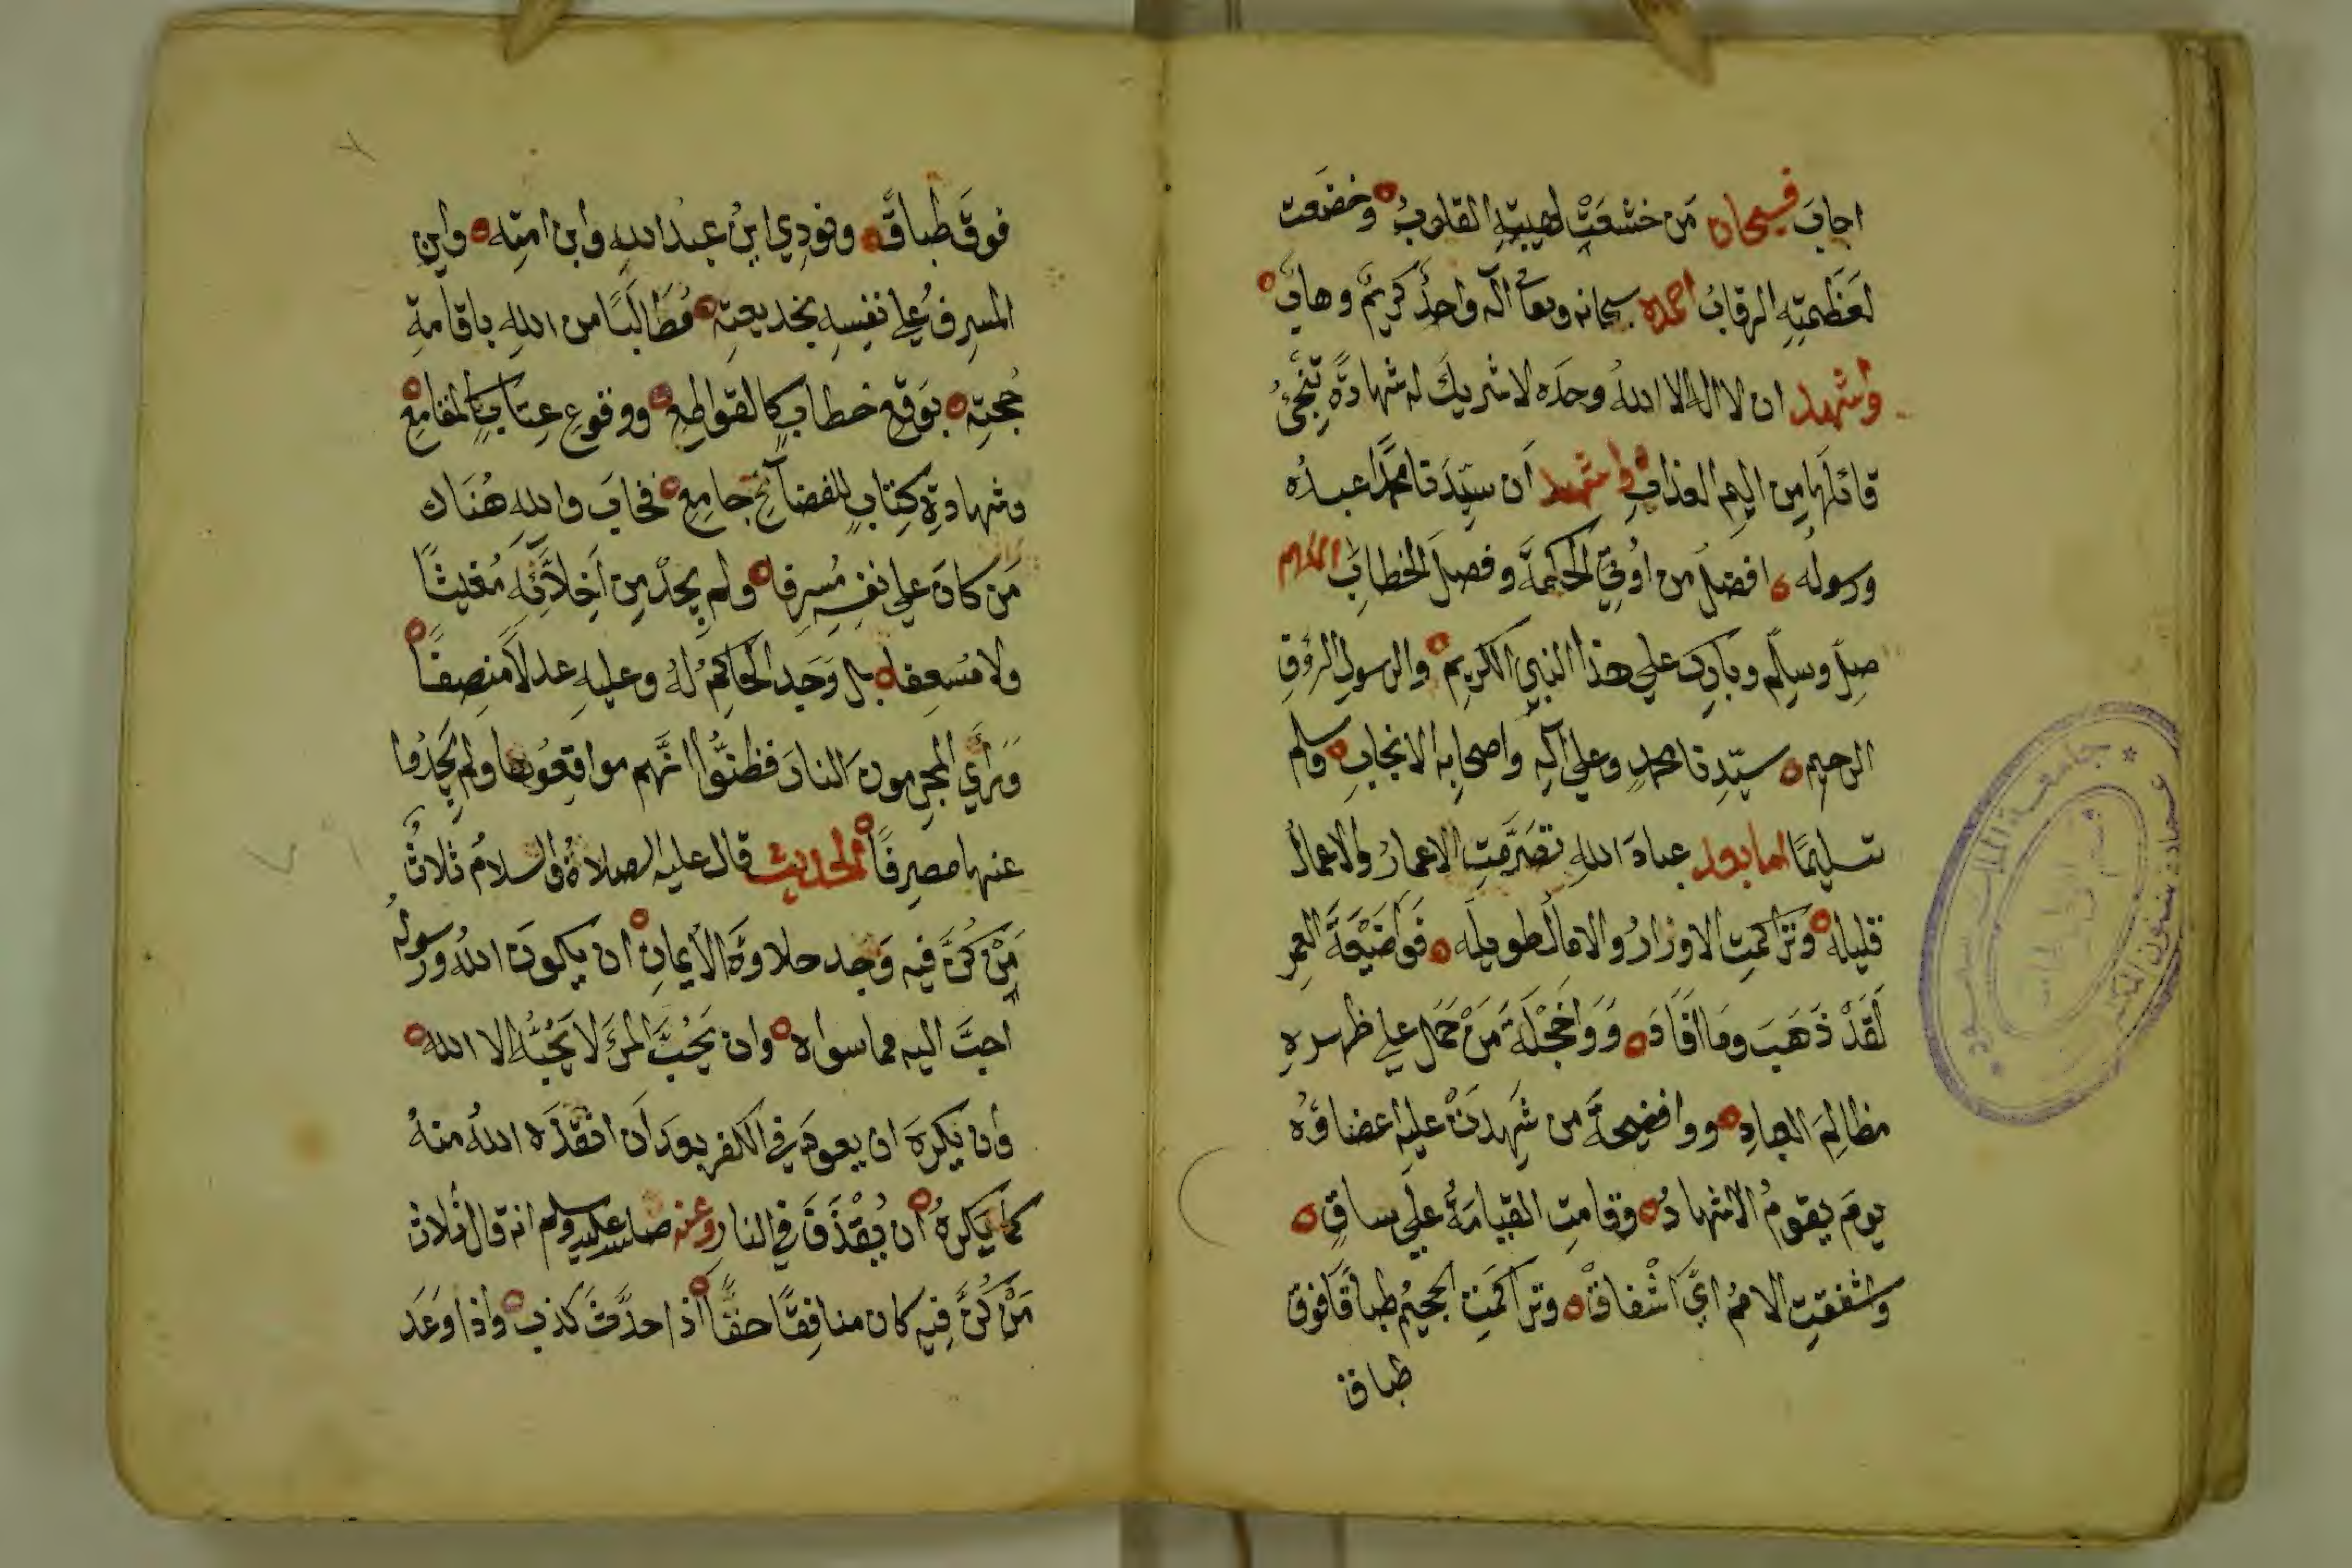 اجابَ فسبحان مَن خشعَتْ لهيبتِهِ القلوبُ وخضعت
لعَظَمتِهِ الرقابُ احمده سبحانه وتعالى اله واحدٌ كريمٌ وهابٌ
واشهد ان لا اله الا اللهُ وحدَه لا شريكَ له شهادةً تنجىُ
قائلَها مِن اليمِ العذابِ واشهد اَن سيّدَنا محمدًا عبدُه
ورسولُه افضلُ من اوُتِيَ الحكمةَ وفصلَ الخطابَ اللهم
صلِّ وسلِّم وبارك على هذا النبيِ الكريمِ والرسولِ الرؤفِ
الرحيمِ سيّدِنا محمدٍ وعلى آلِهِ واصحابِهِ الانجابِ وسلم
تسليمًا اما بعد عبادَ اللهِ تصَرَّمتِ الاعمارُ والاعمالُ
قليله وتراكمتِ الاوزارُ والامالُ طويله فَواضَيْعَةَ العمرِ
لَقَدْ ذَهَبَ ومَا افَادَ وَوَاخَجْلَةَ مَنْ حَمَل على ظهره
مظالِمَ العبادِ ووافضيحةَ من شَهِدَتْ عليهِ اعضاؤُه
يومَ يقومُ الاشهادُ وقامتِ القيامَةُ علَى ساقٍ
واشفقتِ الاممُ ايَّ اشْفاقٍ وتراكمَتِ الجحيمُ طباقًا فوق
طباق
فوقَ طباقٍ ونودِي اينَ عبدُ اللهِ وابن امتِه واين
المسرفُ على نفسِهِ بخديعتِهِ مُطَالَبًا من اللهِ باقامةِ
حُجتِه بوَقعِ خطابٍ كالقواطعِ ووقوعِ عِتابٍ كالمقامعِ
وشهادةِ كِتابٍ للفضائحِ جامعِ فخابَ واللهِ هُنَاك
مَن كانَ على نفسِهِ مُسرفا ولم يجدْ مِن اَخِلاَّئِهِ مُغيثًا
ولا مُسعِفا بل وَجَد الحاكمَ لهُ وعليهِ عدلاً منصِفًا
ورَأي المجرمونَ النارَ فظنُّوا انَّهم مواقعُوها ولم يَجدُوا
عنها مصرفًا الحديث قال عليه الصلاةُ والسلامُ ثلاثٌ
مَنْ كُنَّ فيه وَجد حلاوةَ الايمانِ ان يكونَ اللهُ ورسولُه
احبَّ اليه مما سواه وان يَحُبَّ المرَءَ لا يَحُبُّه الا الله
وان يكرهَ ان يعودَ في الكفر بعدَ اَن انقذَه اللهُ منهُ
كما يَكرهُ ان يُقْذَفَ في النار وعنه صلى الله عليه وسلم انه قال ثلاث
مَنْ كُنَّ فيهِ كان منافِقًا حقًّا اذا حدَّثَ كذب واذا وَعَد